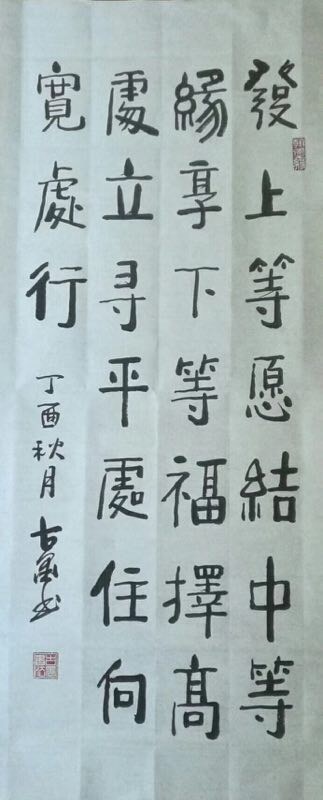 發上等愿結中等
緣享下等福擇高
處立尋平處住向
寬處行
丁酉秋月